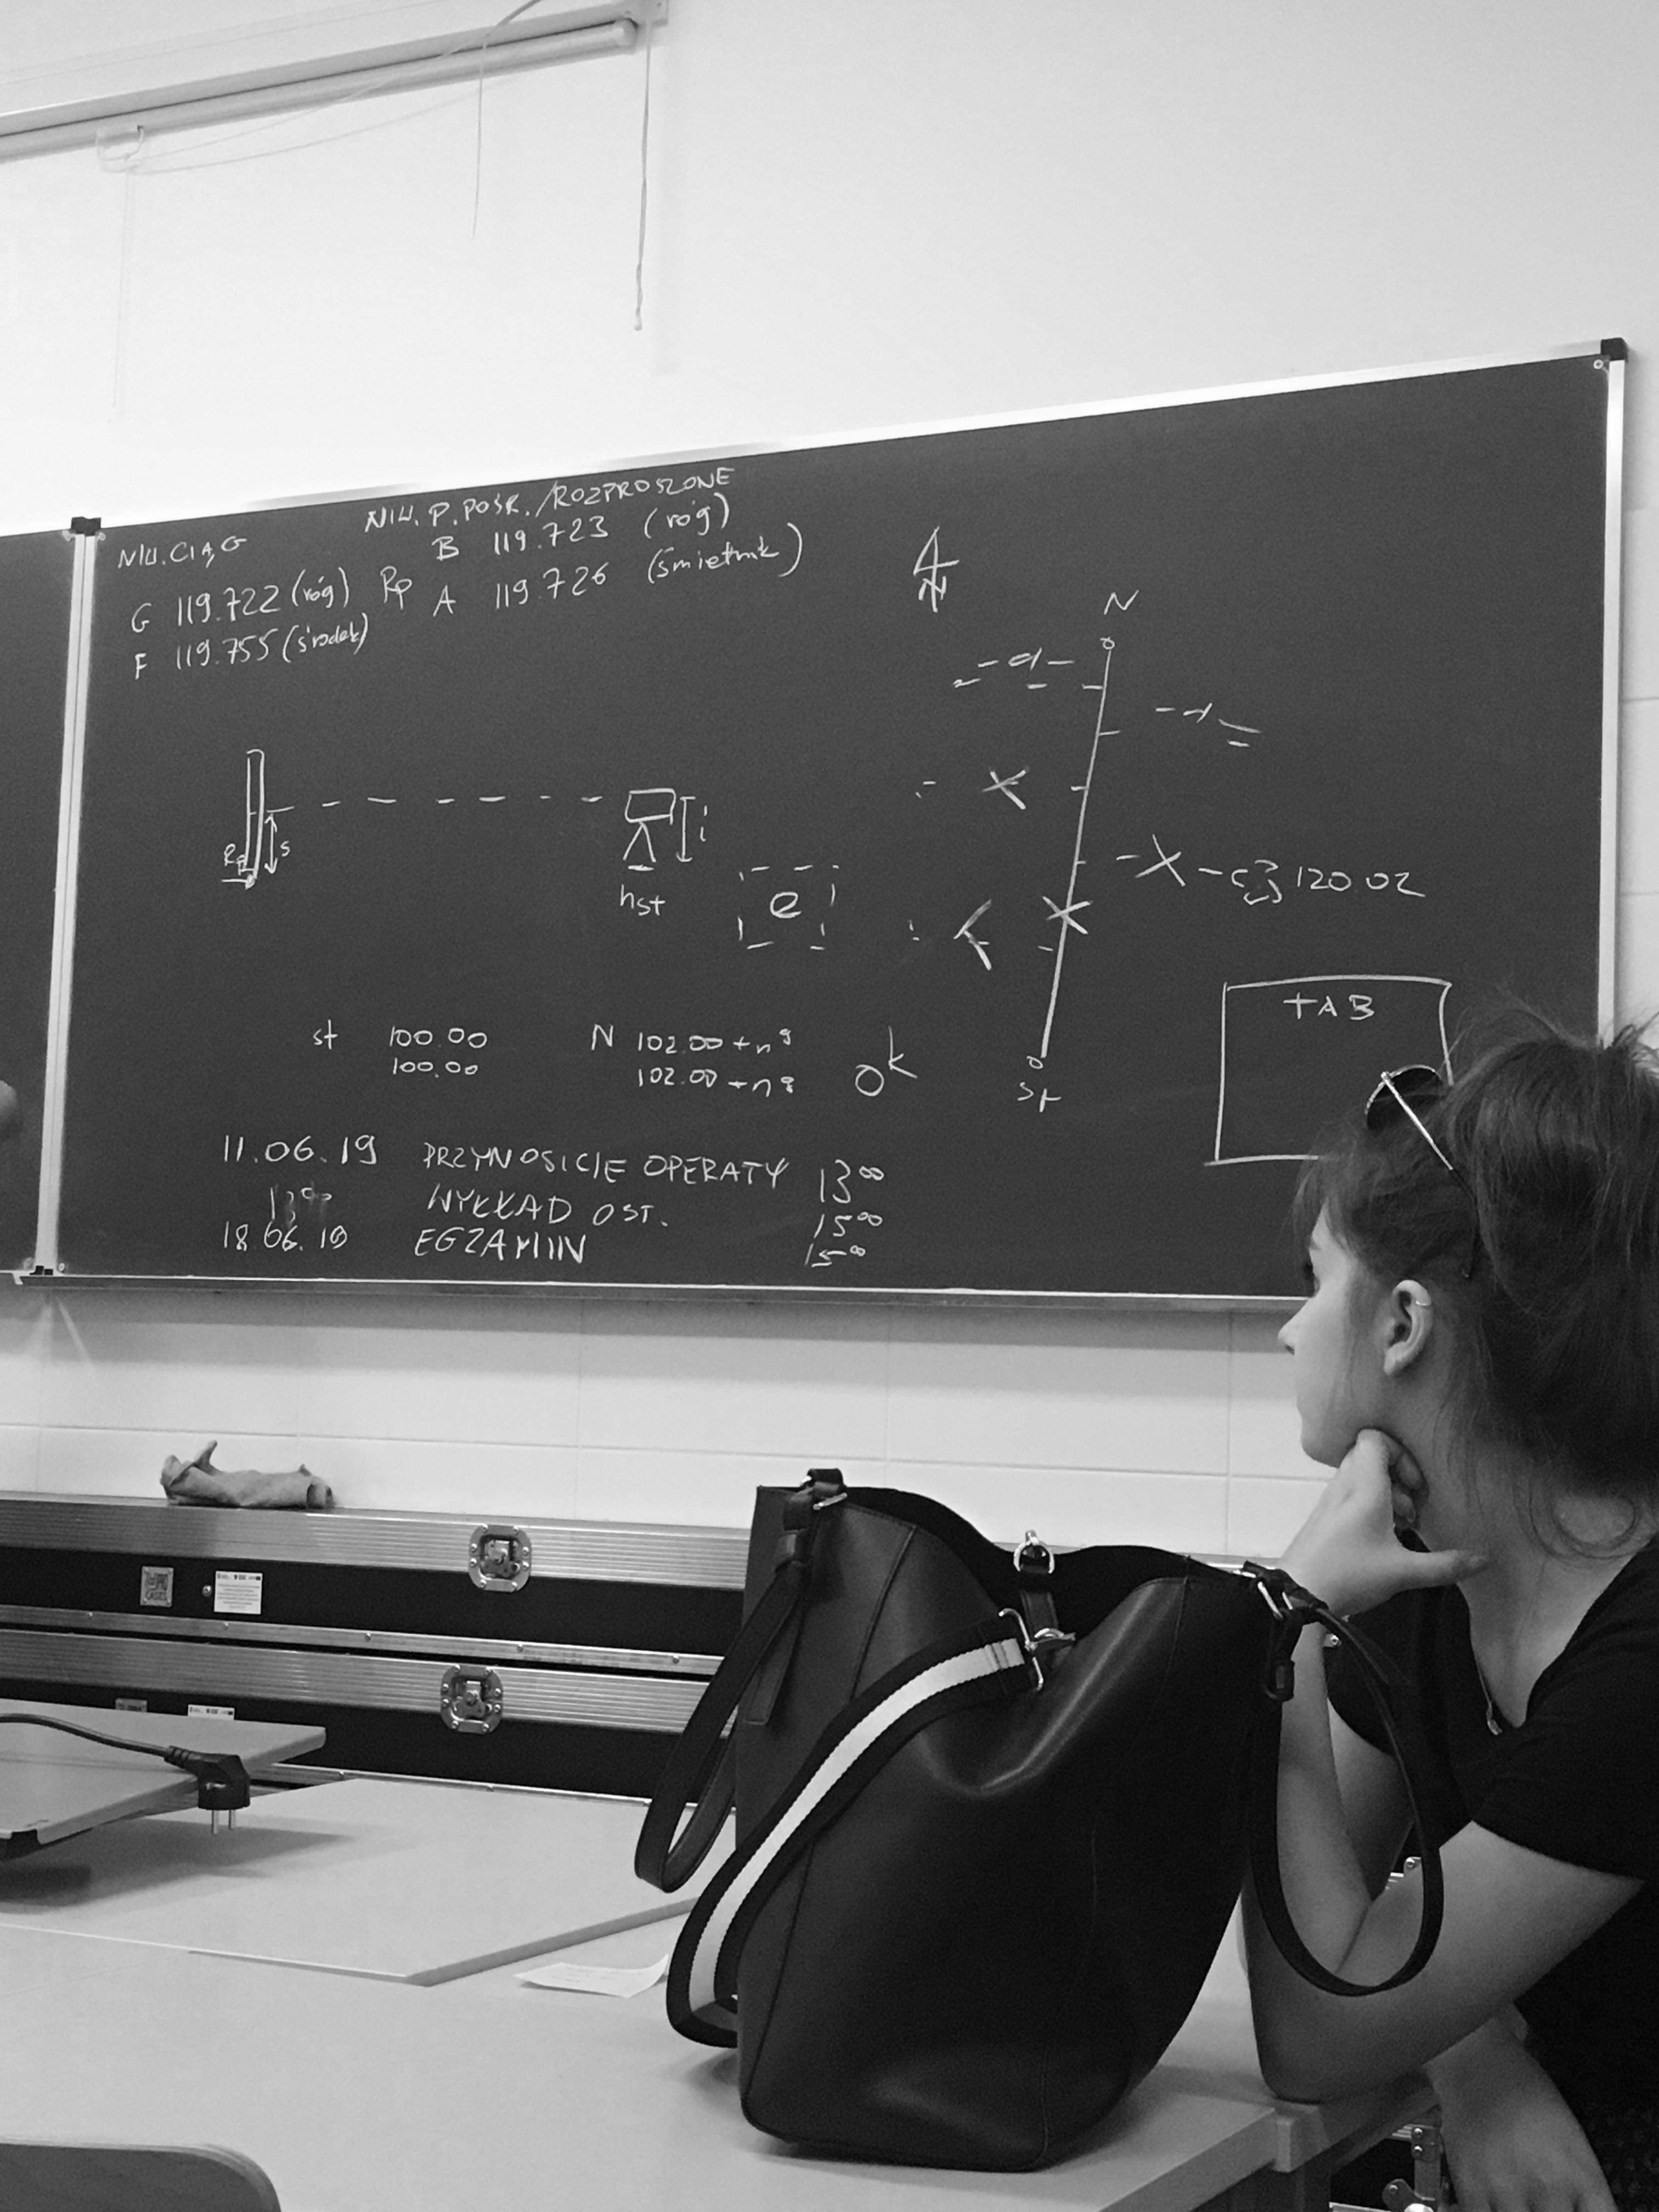 NIW. CIĄG
G 119.722 (róg)
F 119.755 (środek)
NIW. P. POŚR. / ROZPROSZONE
B 119.723 (róg)
Rp A 119.726 (śmietnik)
N
N
120.02
Rp
s
i
hst
e
st 100.00
100.00
N 102.00 + n g
102.00 + n g
ok
st
TAB
11.06.19 PRZYNOSICIE OPERATY 13⁰⁰
13⁰⁰ WYKŁAD OST. 15⁰⁰
18.06.19 EGZAMIN 15⁰⁰